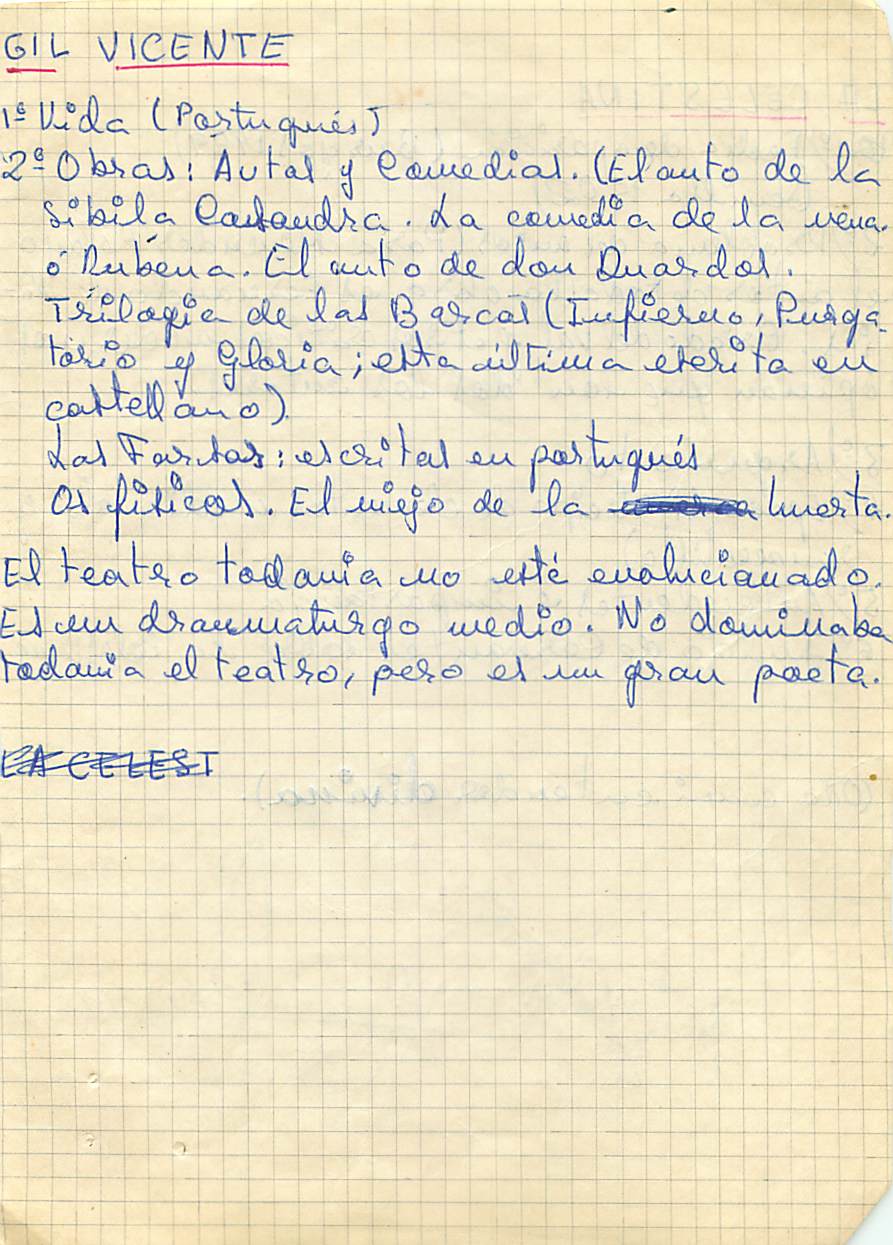 GIL VICENTE
1º Vida (Portugués)
2º Obras: Autos y Comedias. (El auto de la
Sibila Casandra. La comedia de la
ó Rubena. El auto de don Duardos.
Trilogía de las Barcas (Infierno, Purga-
torio y Gloria; esta última escrita en
castellano).
Las Farsas: escritas en portugués
Os físicos. El viejo de la huerta.
El teatro todavía no está evolucionado.
Es un dramaturgo medio. No dominaba
todavía el teatro, pero es un gran poeta.
LA CELEST